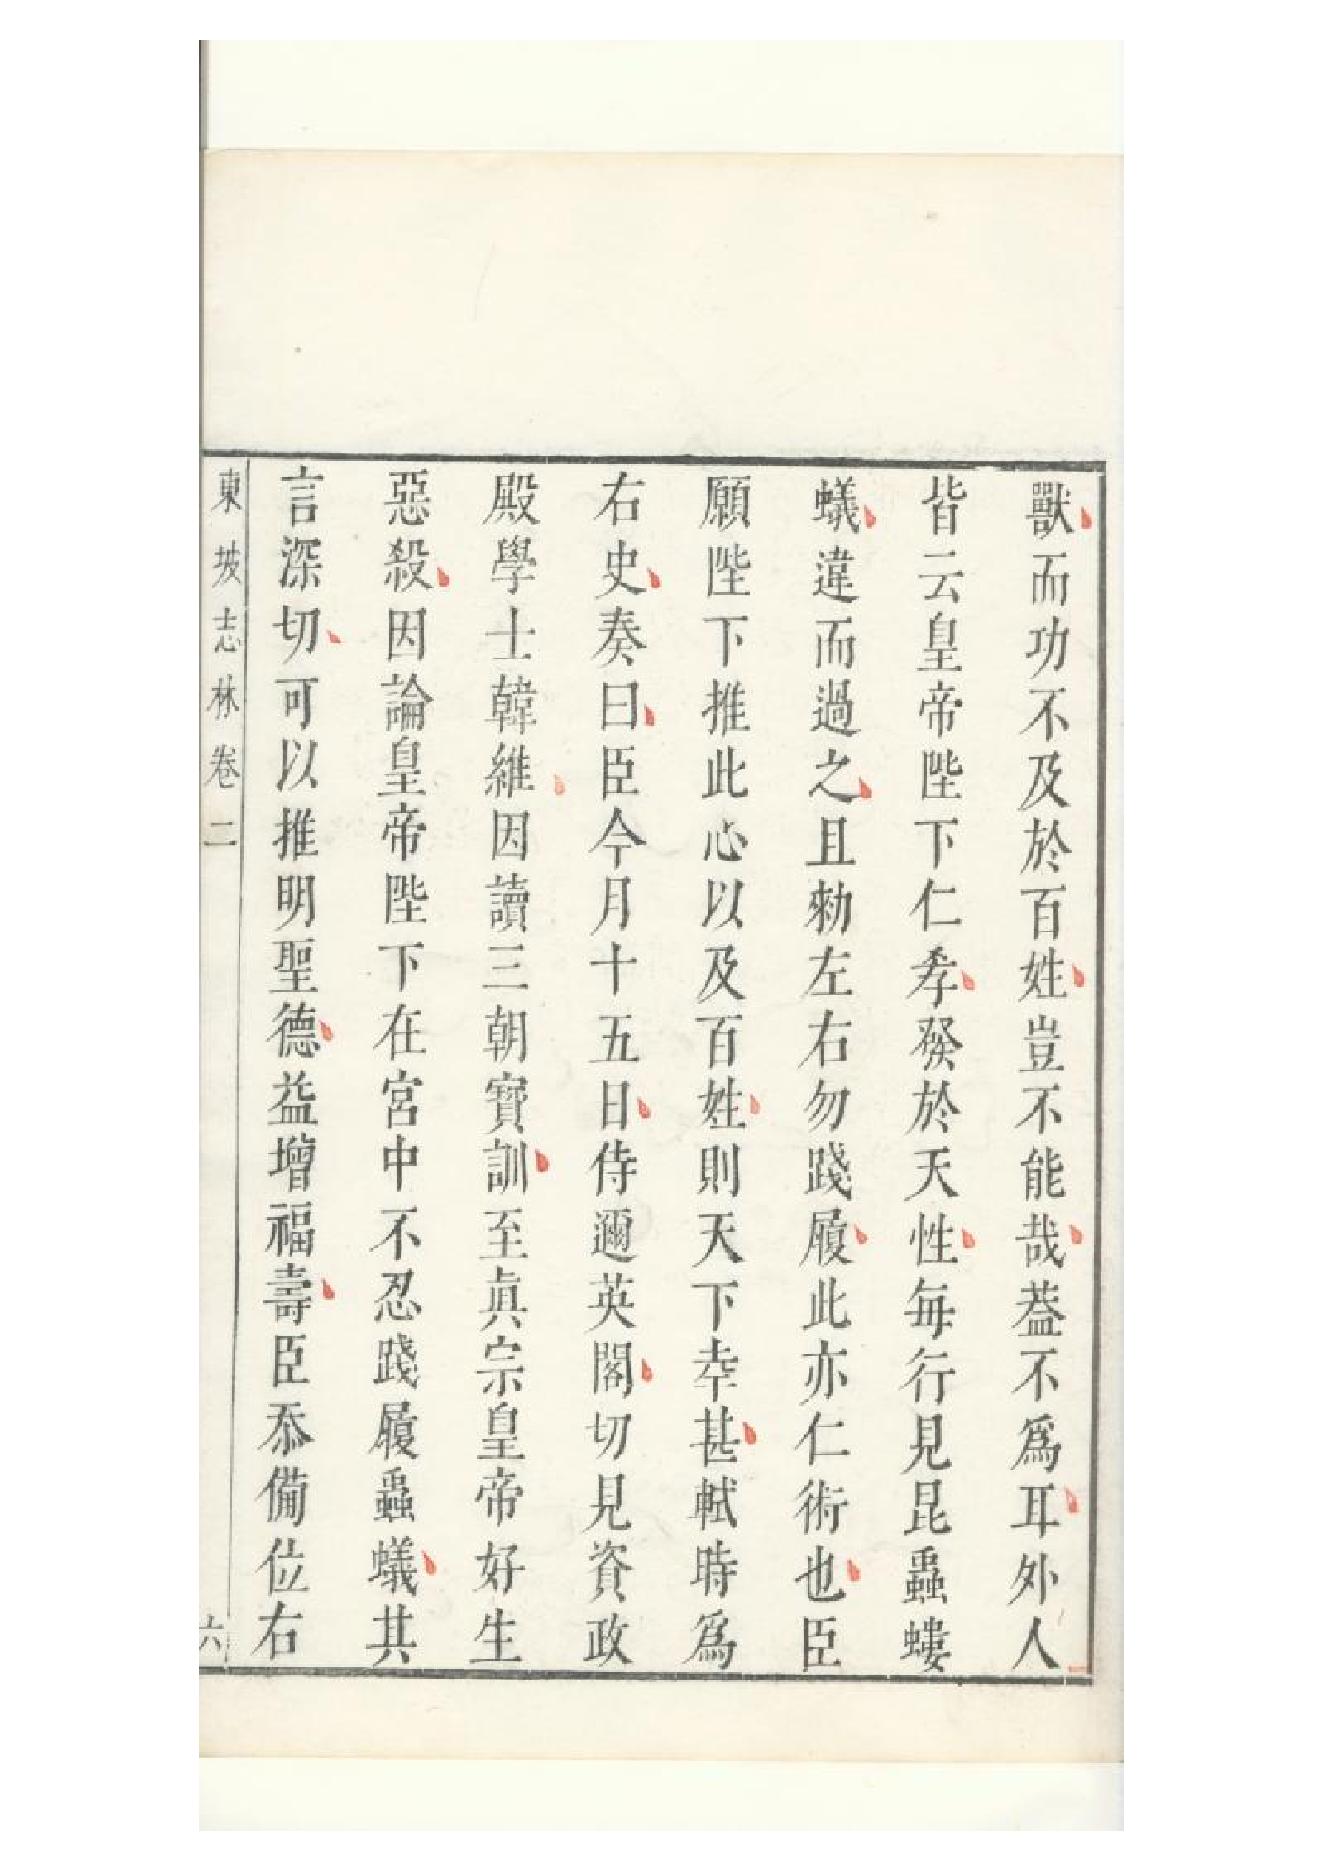 獸而功不及於百姓豈不能哉葢不爲耳外人
皆云皇帝陛下仁孝發於天性每行見昆蟲螻
蟻違而過之且勑左右勿踐履此亦仁術也臣
願陛下推此心以及百姓則天下幸甚軾時爲
右史奏曰臣今月十五日侍邇英閣切見資政
殿學士韓維因讀三朝寶訓至眞宗皇帝好生
惡殺因論皇帝陛下在宮中不忍踐履蟲蟻其
言深切可以推明聖德益增福壽臣忝備位右
東坡志林卷二
六